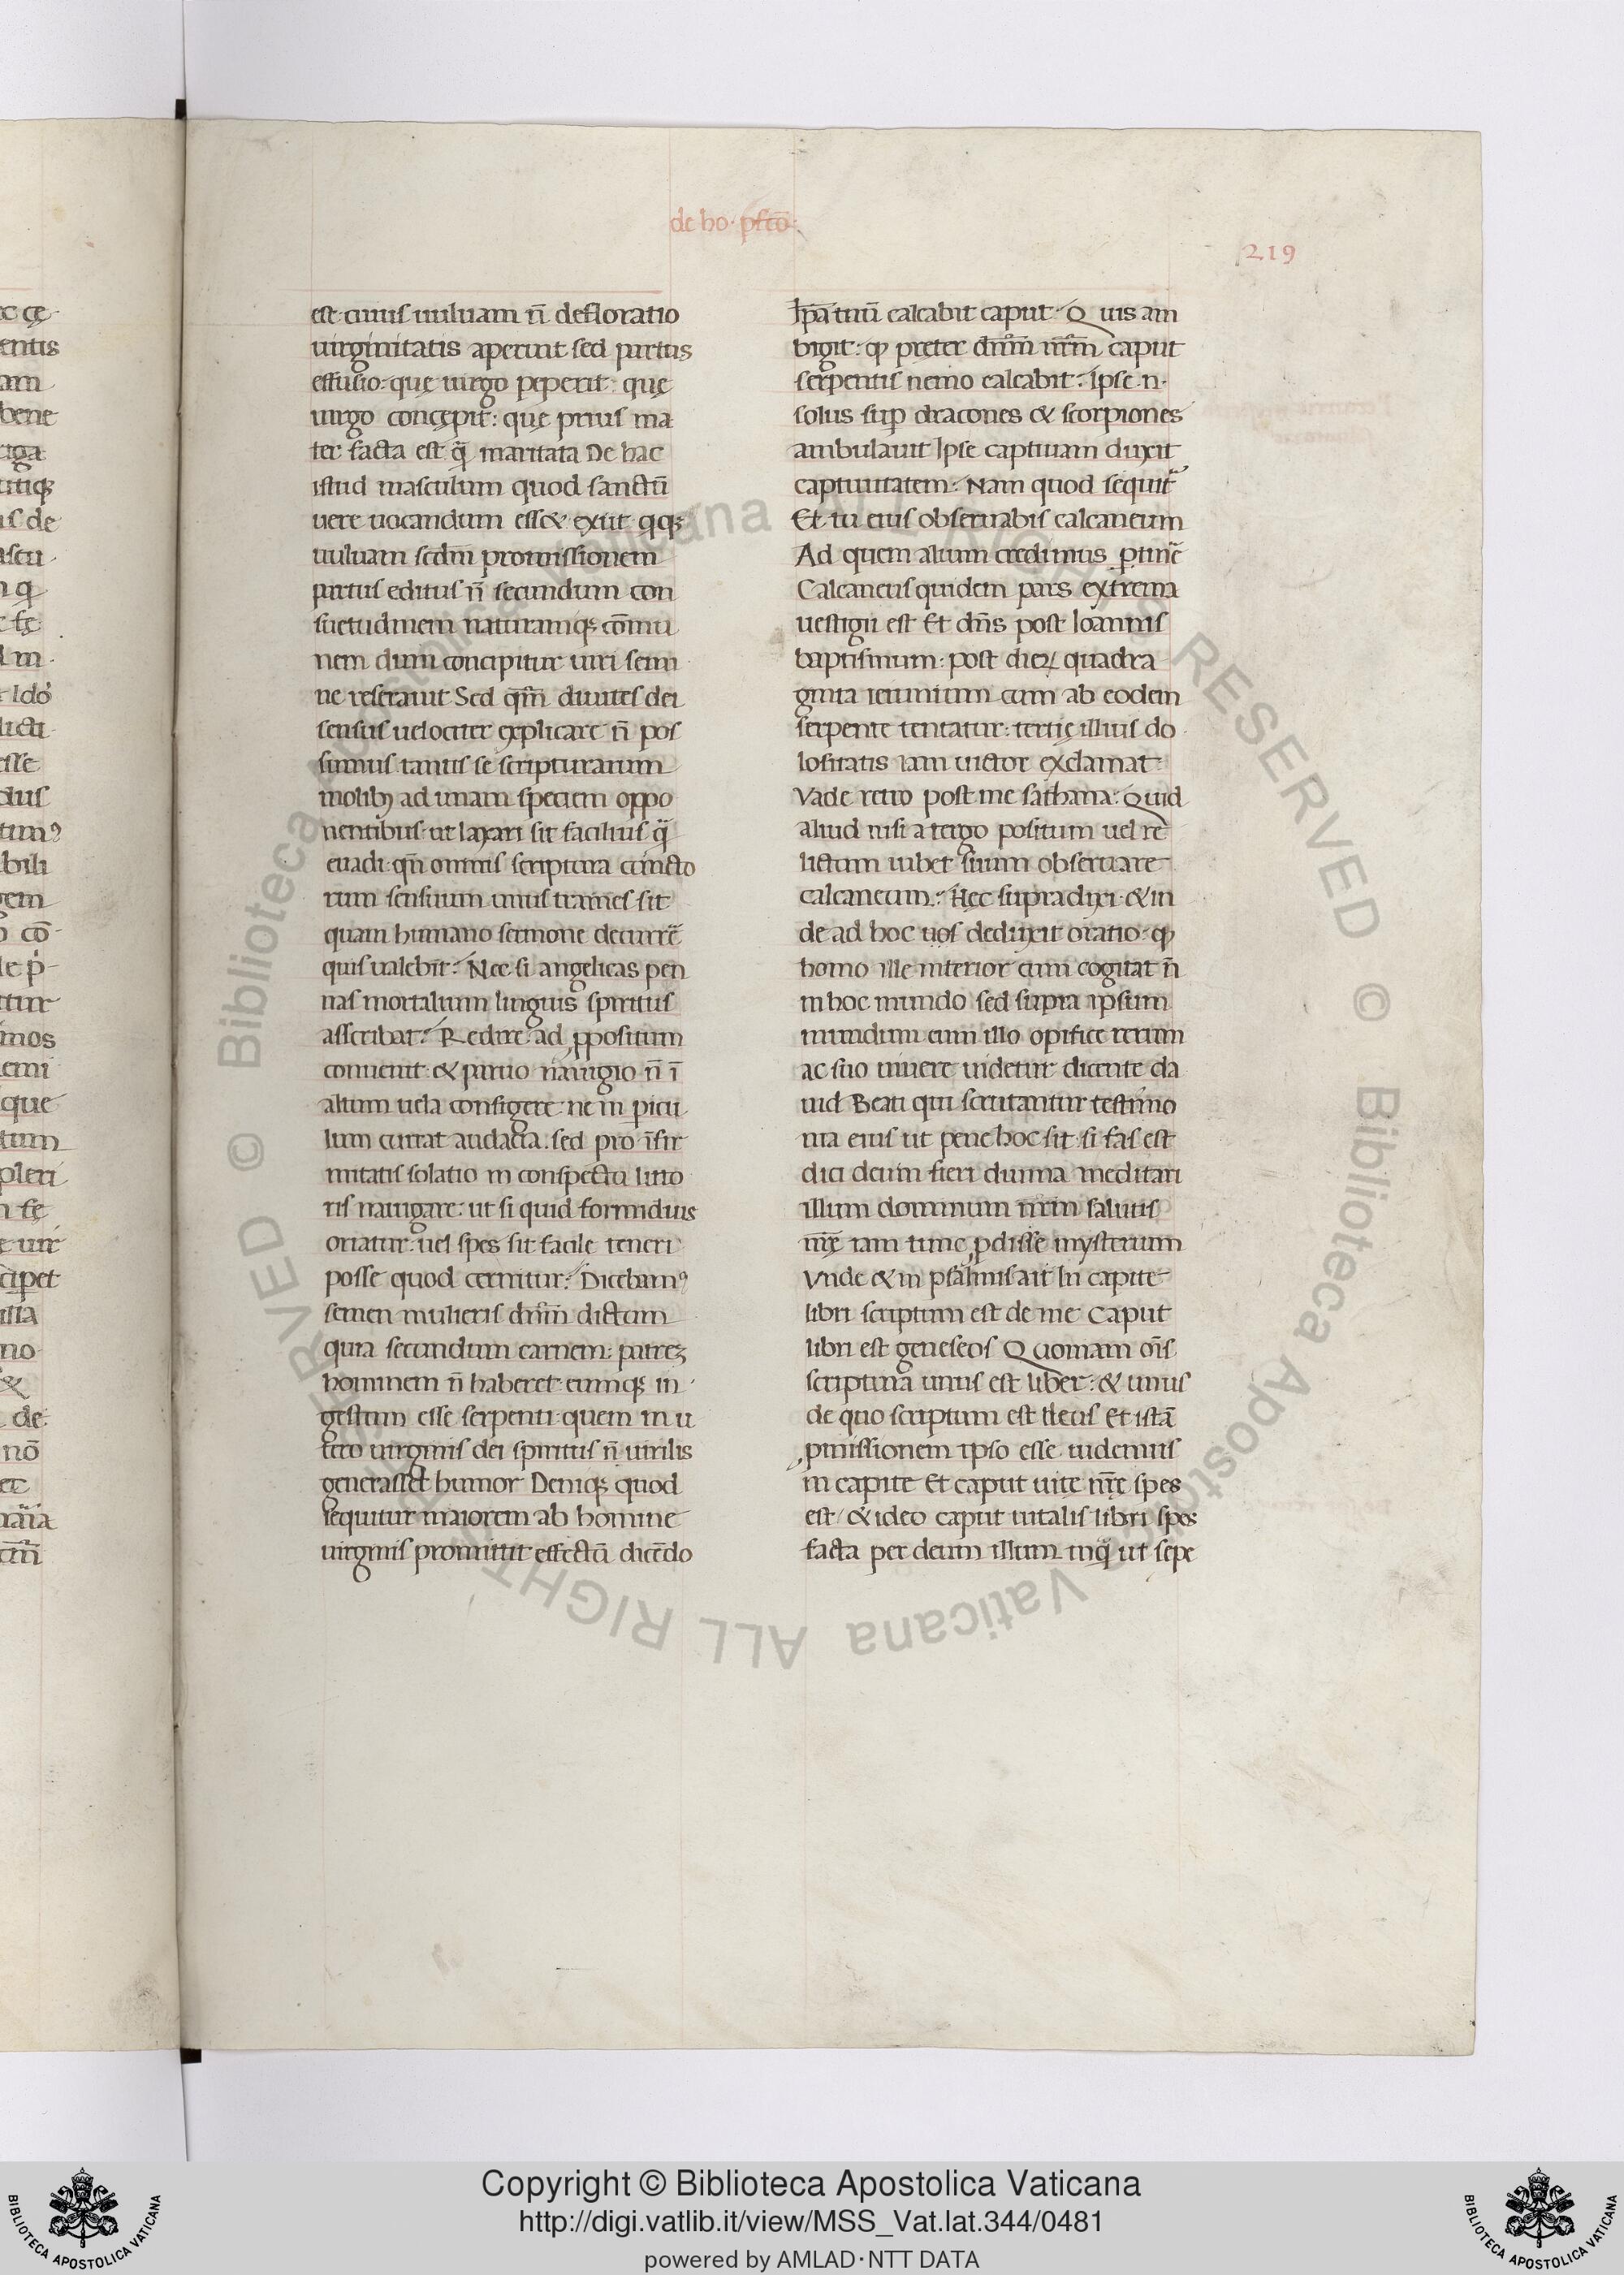 de ho. pfcō.
219
est cuius uuluam n̄ defloratio
uirginitatis aperuit sed partus
effusio: quę uirgo peperit: quę
uirgo concępit: quę prius ma
ter facta est q̄ maritata De hac
istud masculum quod sanctū
uere uocandum ess& exiit q̨q;
uuluam scdm̄ promissionem
partus editus n̄ secundum con
suetudinem naturamq; cōmu
nem dum concipitur uiri semi
ne reserauit Sed qm̄ diuites dei
sensus uelociter explicare n̄ pos
sumus tantis se scripturarum
molib; ad unam speciem oppo
nentibus: ut laxari sit facilius q̄
euadi: qn̄ omnis scriptura cuncto
rum sensuum unus trames sit
quam humano sermone decurrē
quis ualebit? Nec si angelicas pen
nas mortalium linguis spiritus
asscribat? Redire ad ꝓpositum
conuenit: & paruo nauigio n̄ ī
altum uela configere: ne in ꝑicu
lum currat audacia: sed pro īfir
mitatis solatio in conspectu litto
ris nauigare: ut si quid formiduis
oriatur: uel spes sit facile teneri
posse quod cernitur: Dicebamꝰ
semen mulieris dn̄m̄ dictum
quia secundum carnem: patrez
hominem n̄ haberet: eumq; in
gestum esse serpenti: quem in u
tero uirginis dei spiritus n̄ uirilis
generasset humor Deniq; quod
sequitur maiorem ab homine
uirginis promittit effectū dicēdo
Ipa tuū calcabit caput: Quis am
bigit: ꝙ preter dn̄m̄ nr̄m̄ caput
serpentis nemo calcabit: Ipse .n.
solus suꝑ dracones & scorpiones
ambulauit Ipse captiuam duxit
captiuitatem: Nam quod sequit᷑
Et tu eius obseruabis calcaneum
Ad quem alium credimus ꝑtinē
Calcaneus quidem pars extrema
uestigii est Et dn̄s post Ioannis
baptismum: post dieꝝ quadra
ginta ieiunium cum ab eodem
serpente tentatur: tertię illius do
lositatis iam uictor exclamat
Vade retro post me sathana: Quid
aliud nisi a tergo positum uel re
lictum iubet suum obseruare
calcaneum? Hęc supra dixi: & in
de ad hoc nos deduxit oratio: ꝙ
homo ille interior cum cogitat n̄
in hoc mundo sed supra ipsum
mundum cum illo opifice rerum
ac suo uiuere uidetur dicente da
uid Beati qui scrutantur testimo
nia eius ut pene hoc sit si fas est
dici deum fieri diuina meditari
illum dominum nr̄m salutis
nr̄ę iam tunc ꝓdisse mysterium
Vnde & in psalmis ait In capite
libri scriptum est de me Caput
libri est geneseos Quoniam oīs
scriptura unus est liber: & unus
de quo scriptum est deus Et istā
ꝓmissionem ipso esse uidemus
in capite Et caput uitę nr̄ę spes
est/ & ideo caput uitalis libri spes
facta per deum illum inq̄ ut sepe